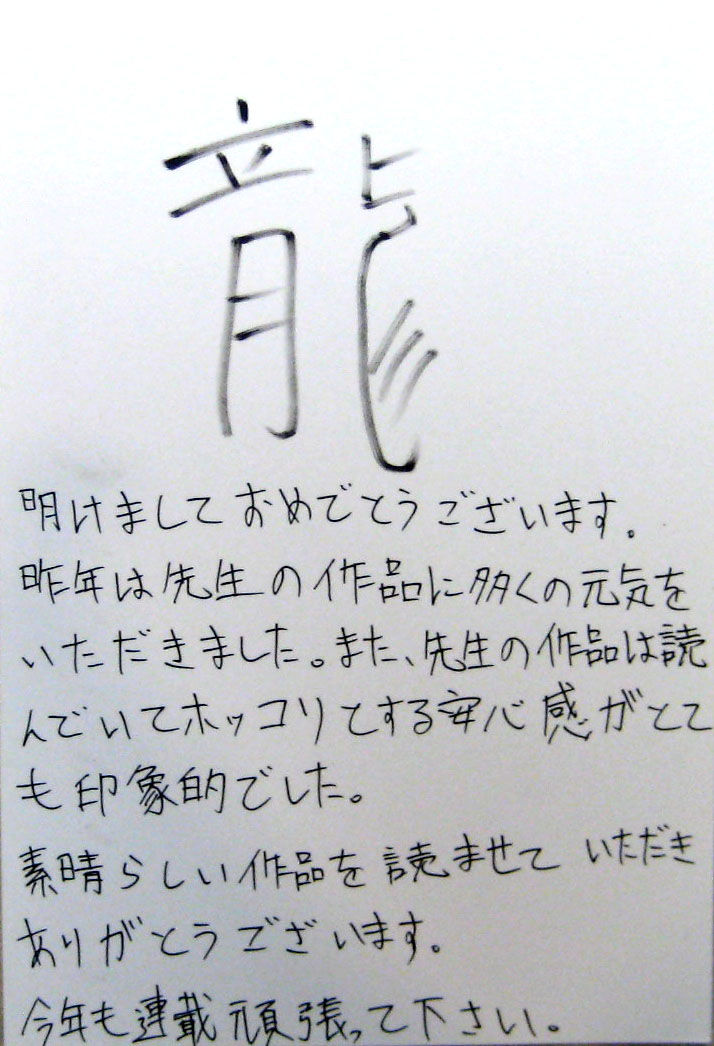 龍
明けましておめでとうございます。
昨年は先生の作品に多くの元気を
いただきました。また、先生の作品は読
んでいてホッコリとする安心感がとて
も印象的でした。
素晴らしい作品を読ませていただき
ありがとうございます。
今年も連載頑張って下さい。